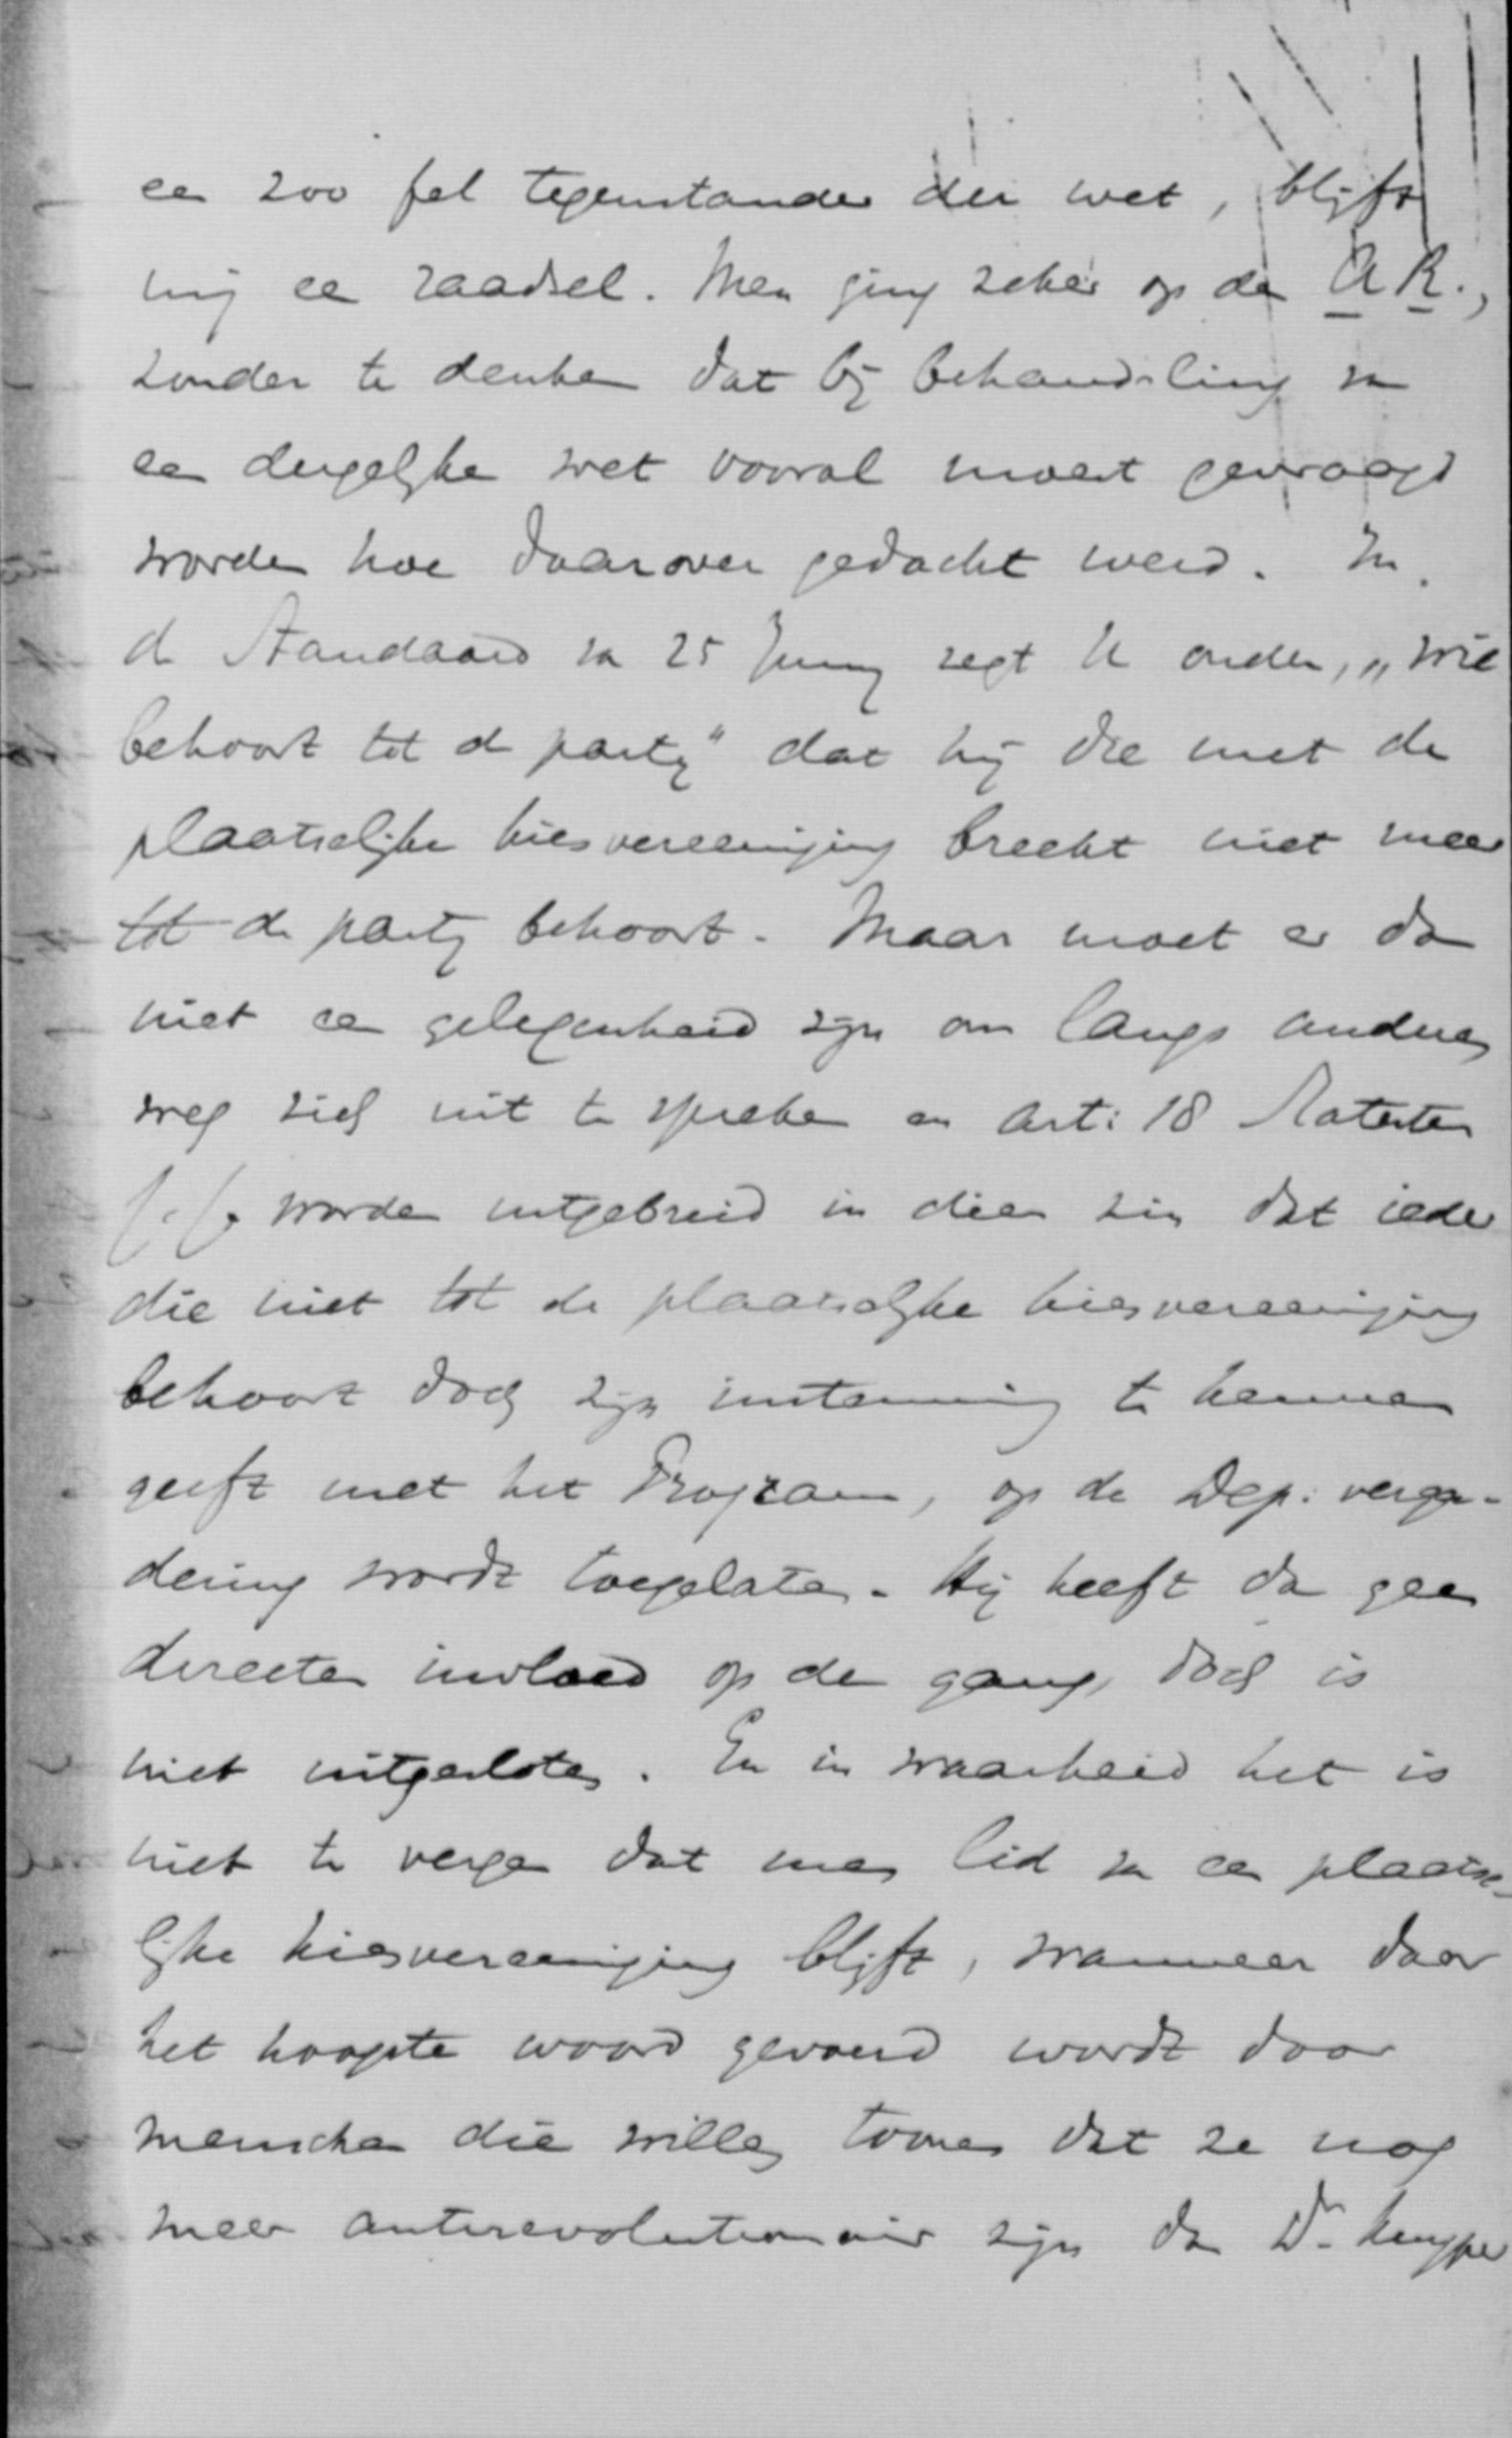 een zoo fel tegenstander der wet, blijft
mij een raadsel. Men ging zeker op den A.R.,
zonder te denken dat bij behandeling van
een dergelijke wet vooral moest gevraagd
worden hoe daarover gedacht werd. In
de Standaard van 25 Juny zegt U onder, „wie
behoort tot de partij" dat hij die met de
plaatselijke kiesvereeniging breekt niet meer
tot de partij behoort. Maar moet er dan
niet een gelegenheid zijn om langs anderen
weg zich uit te spreken en art: 18 Statuten
worden uitgebreid in dien zin dat ieder
die niet tot de plaatselijke kiesvereeniging
behoort doch zijn instemming te kennen
geeft met het Program, op de Dep: verga-
dering wordt toegelaten. Hij heeft dan geen
directen invloed op den gang, doch is
niet uitgesloten. En in waarheid het is
niet te vergen dat men lid van een plaatse-
lijke kiesvereeniging blijft, wanneer daar
het hoogste woord gevoerd wordt door
menschen die willen toonen dat ze nog
meer antirevolutionair zijn dan Dr. Kuyper